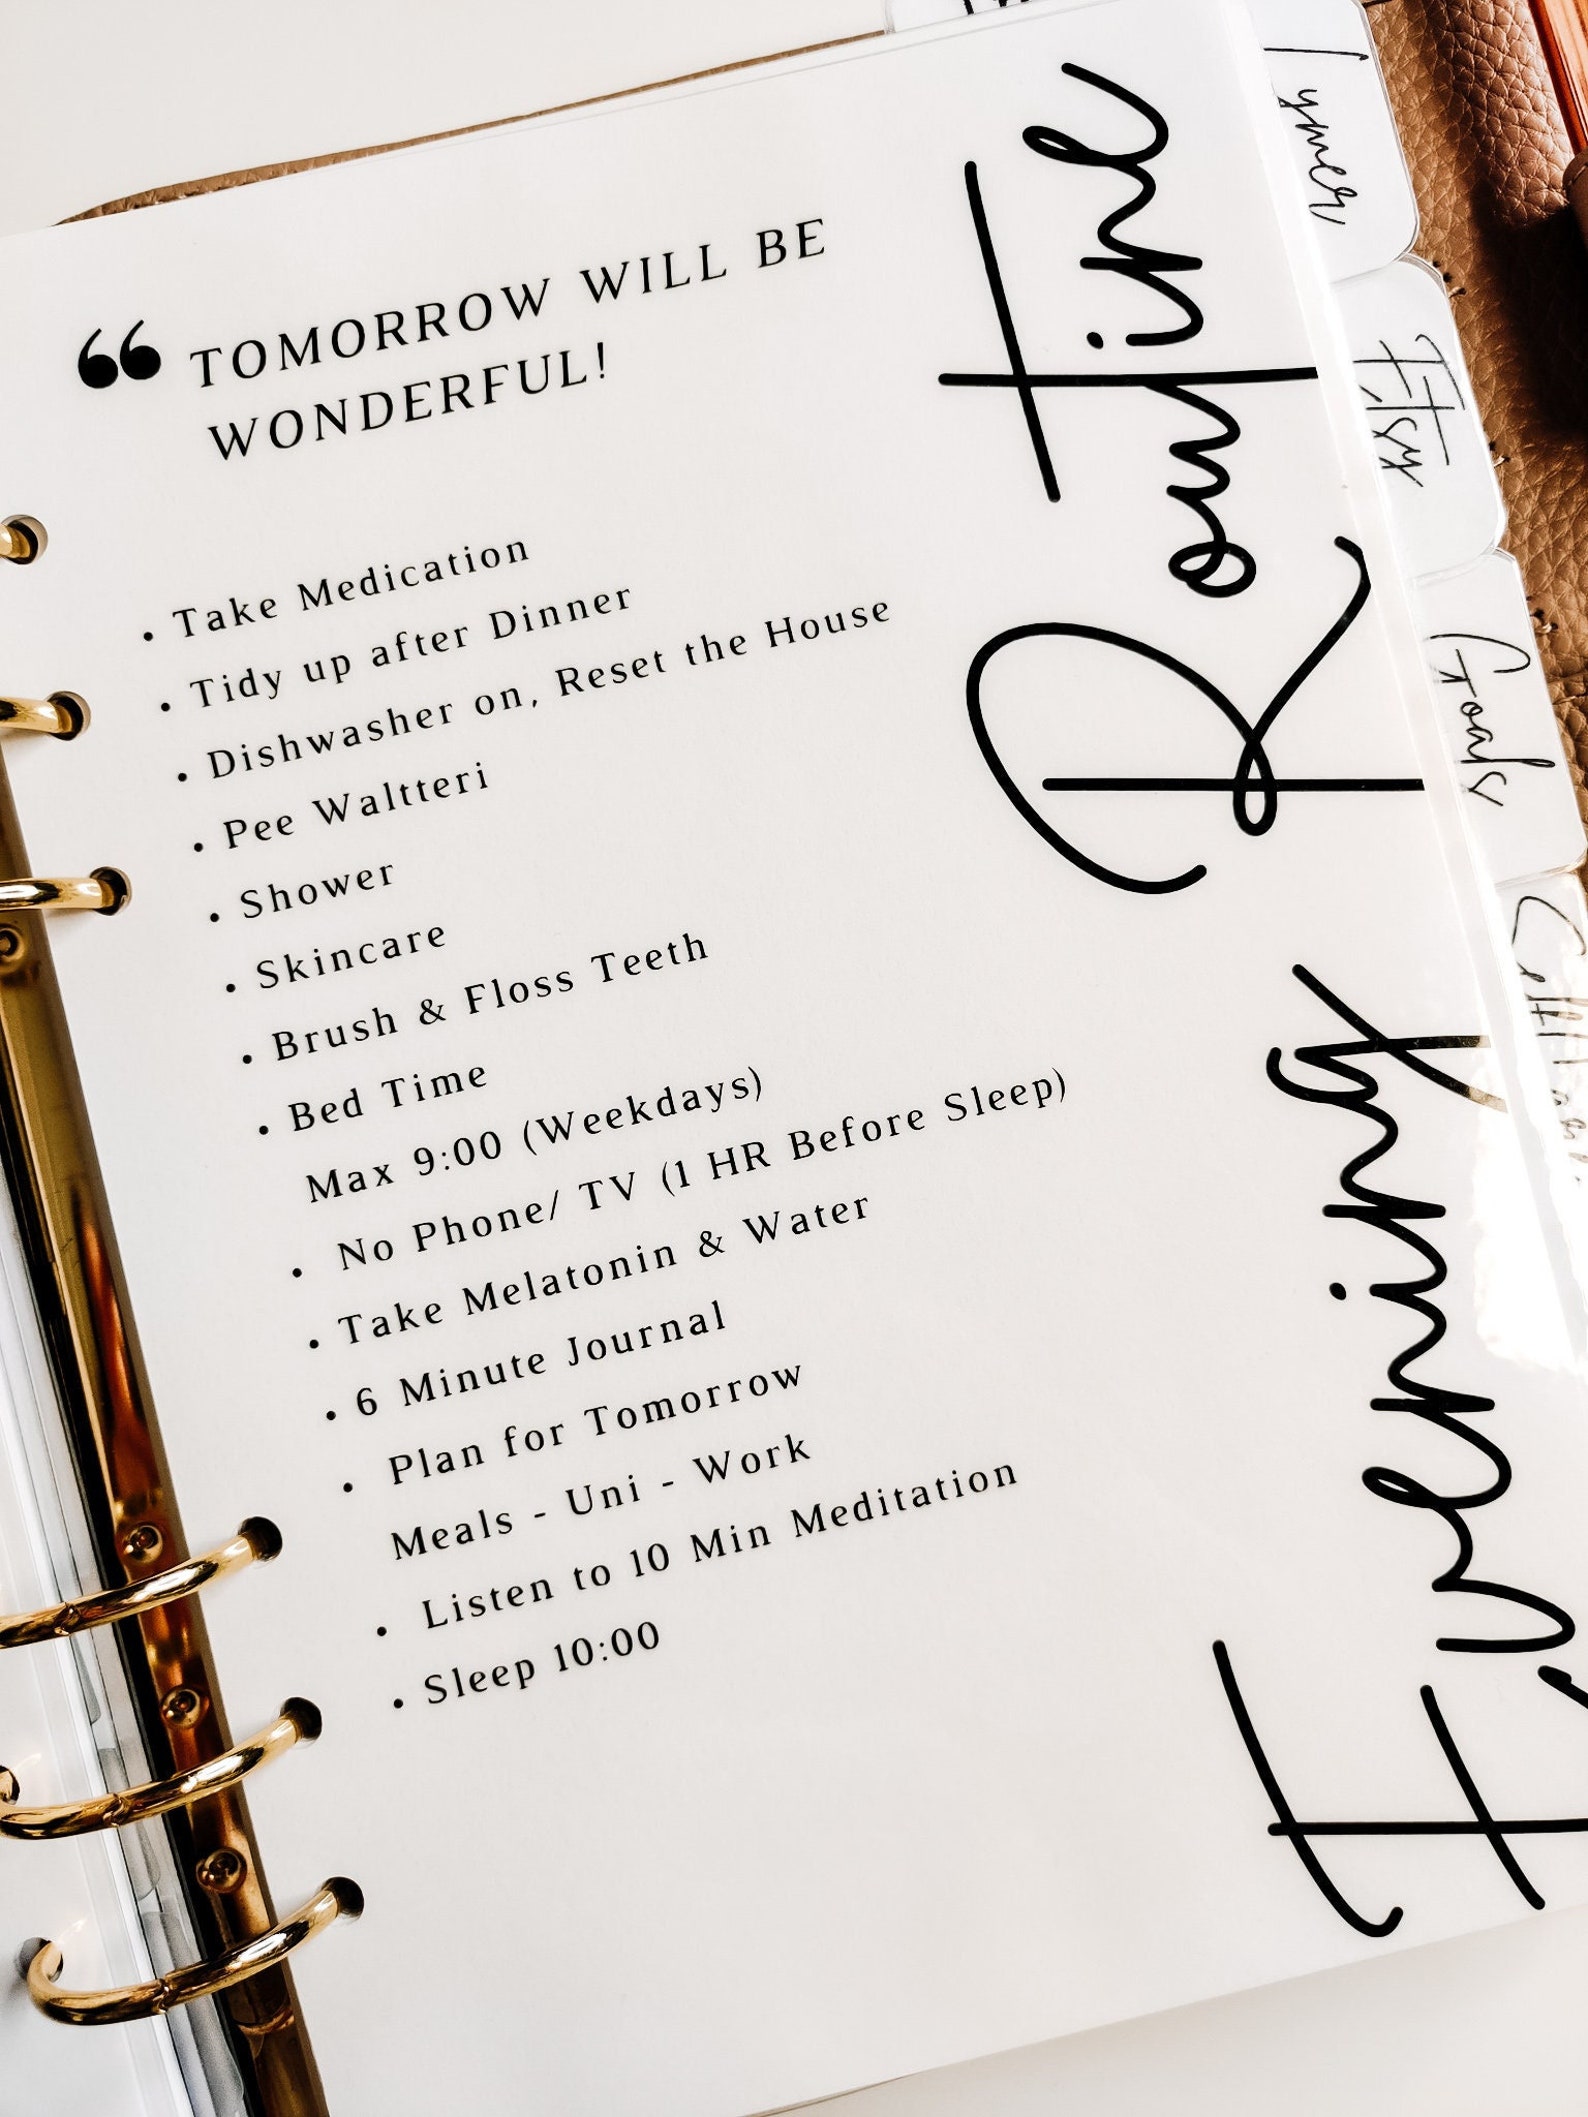 “ TOMORROW WILL BE
WONDERFUL!
• Take Medication
• Tidy up after Dinner
• Dishwasher on, Reset the House
• Pee Waltteri
• Shower
• Skincare
• Brush & Floss Teeth
• Bed Time
Max 9:00 (Weekdays)
• No Phone/ TV (1 HR Before Sleep)
• Take Melatonin & Water
• 6 Minute Journal
• Plan for Tomorrow
Meals - Uni - Work
• Listen to 10 Min Meditation
• Sleep 10:00
Evening Routine
Etsy
Goals